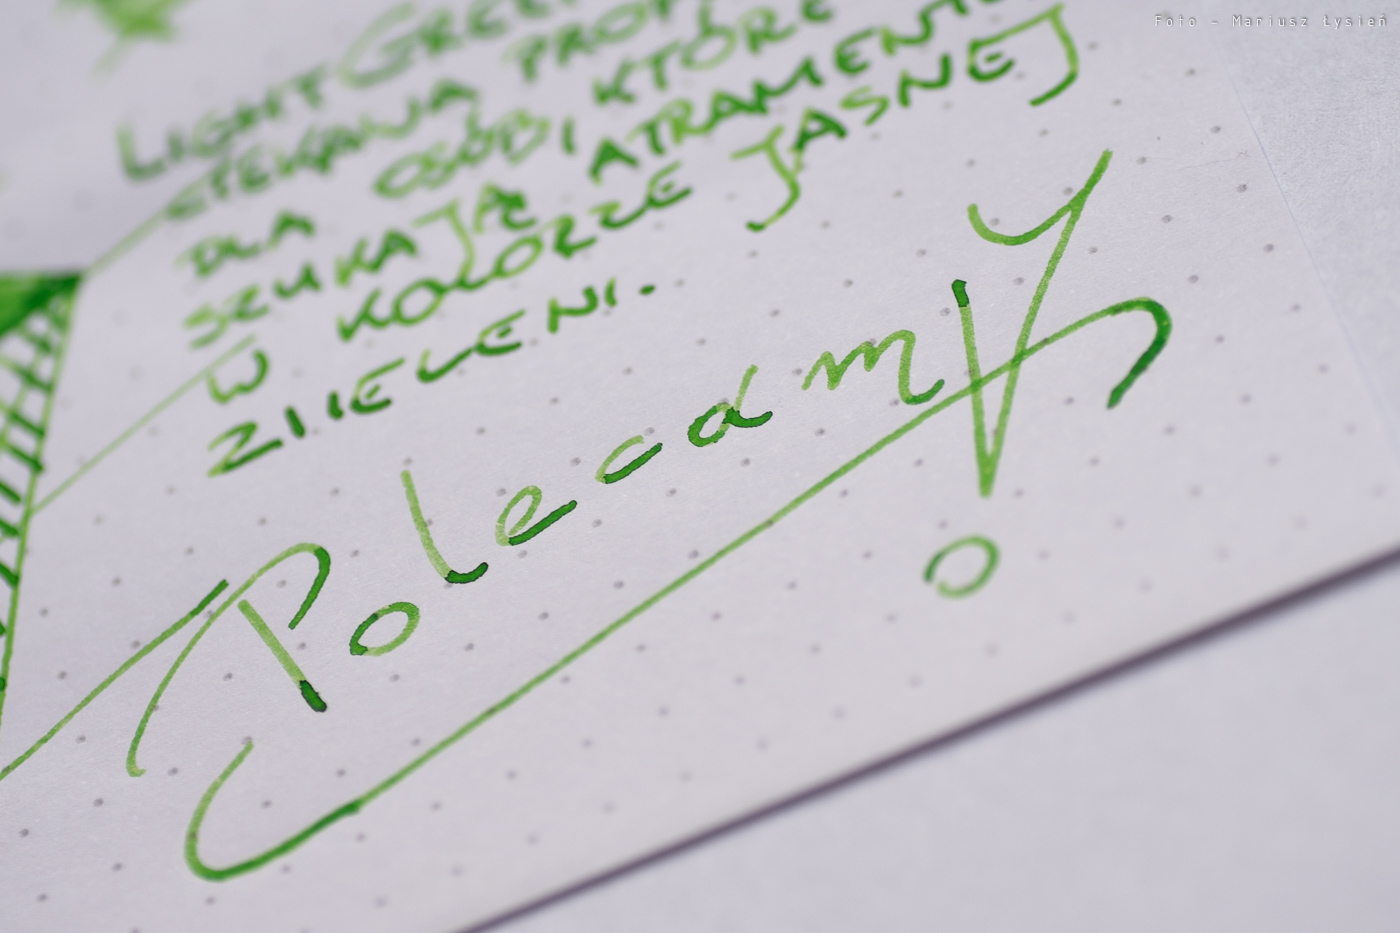 Foto - Mariusz Łysień
LIGHT GREEN
CIEKAWA PROPO
DLA OSÓB, KTÓRE
SZUKAJĄ ATRAMENTU
W KOLORZE JASNEJ
ZIELENI.
Polecam!